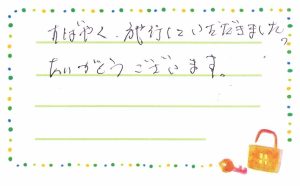 すばやく、旅行していただきました。
ありがとうございます。